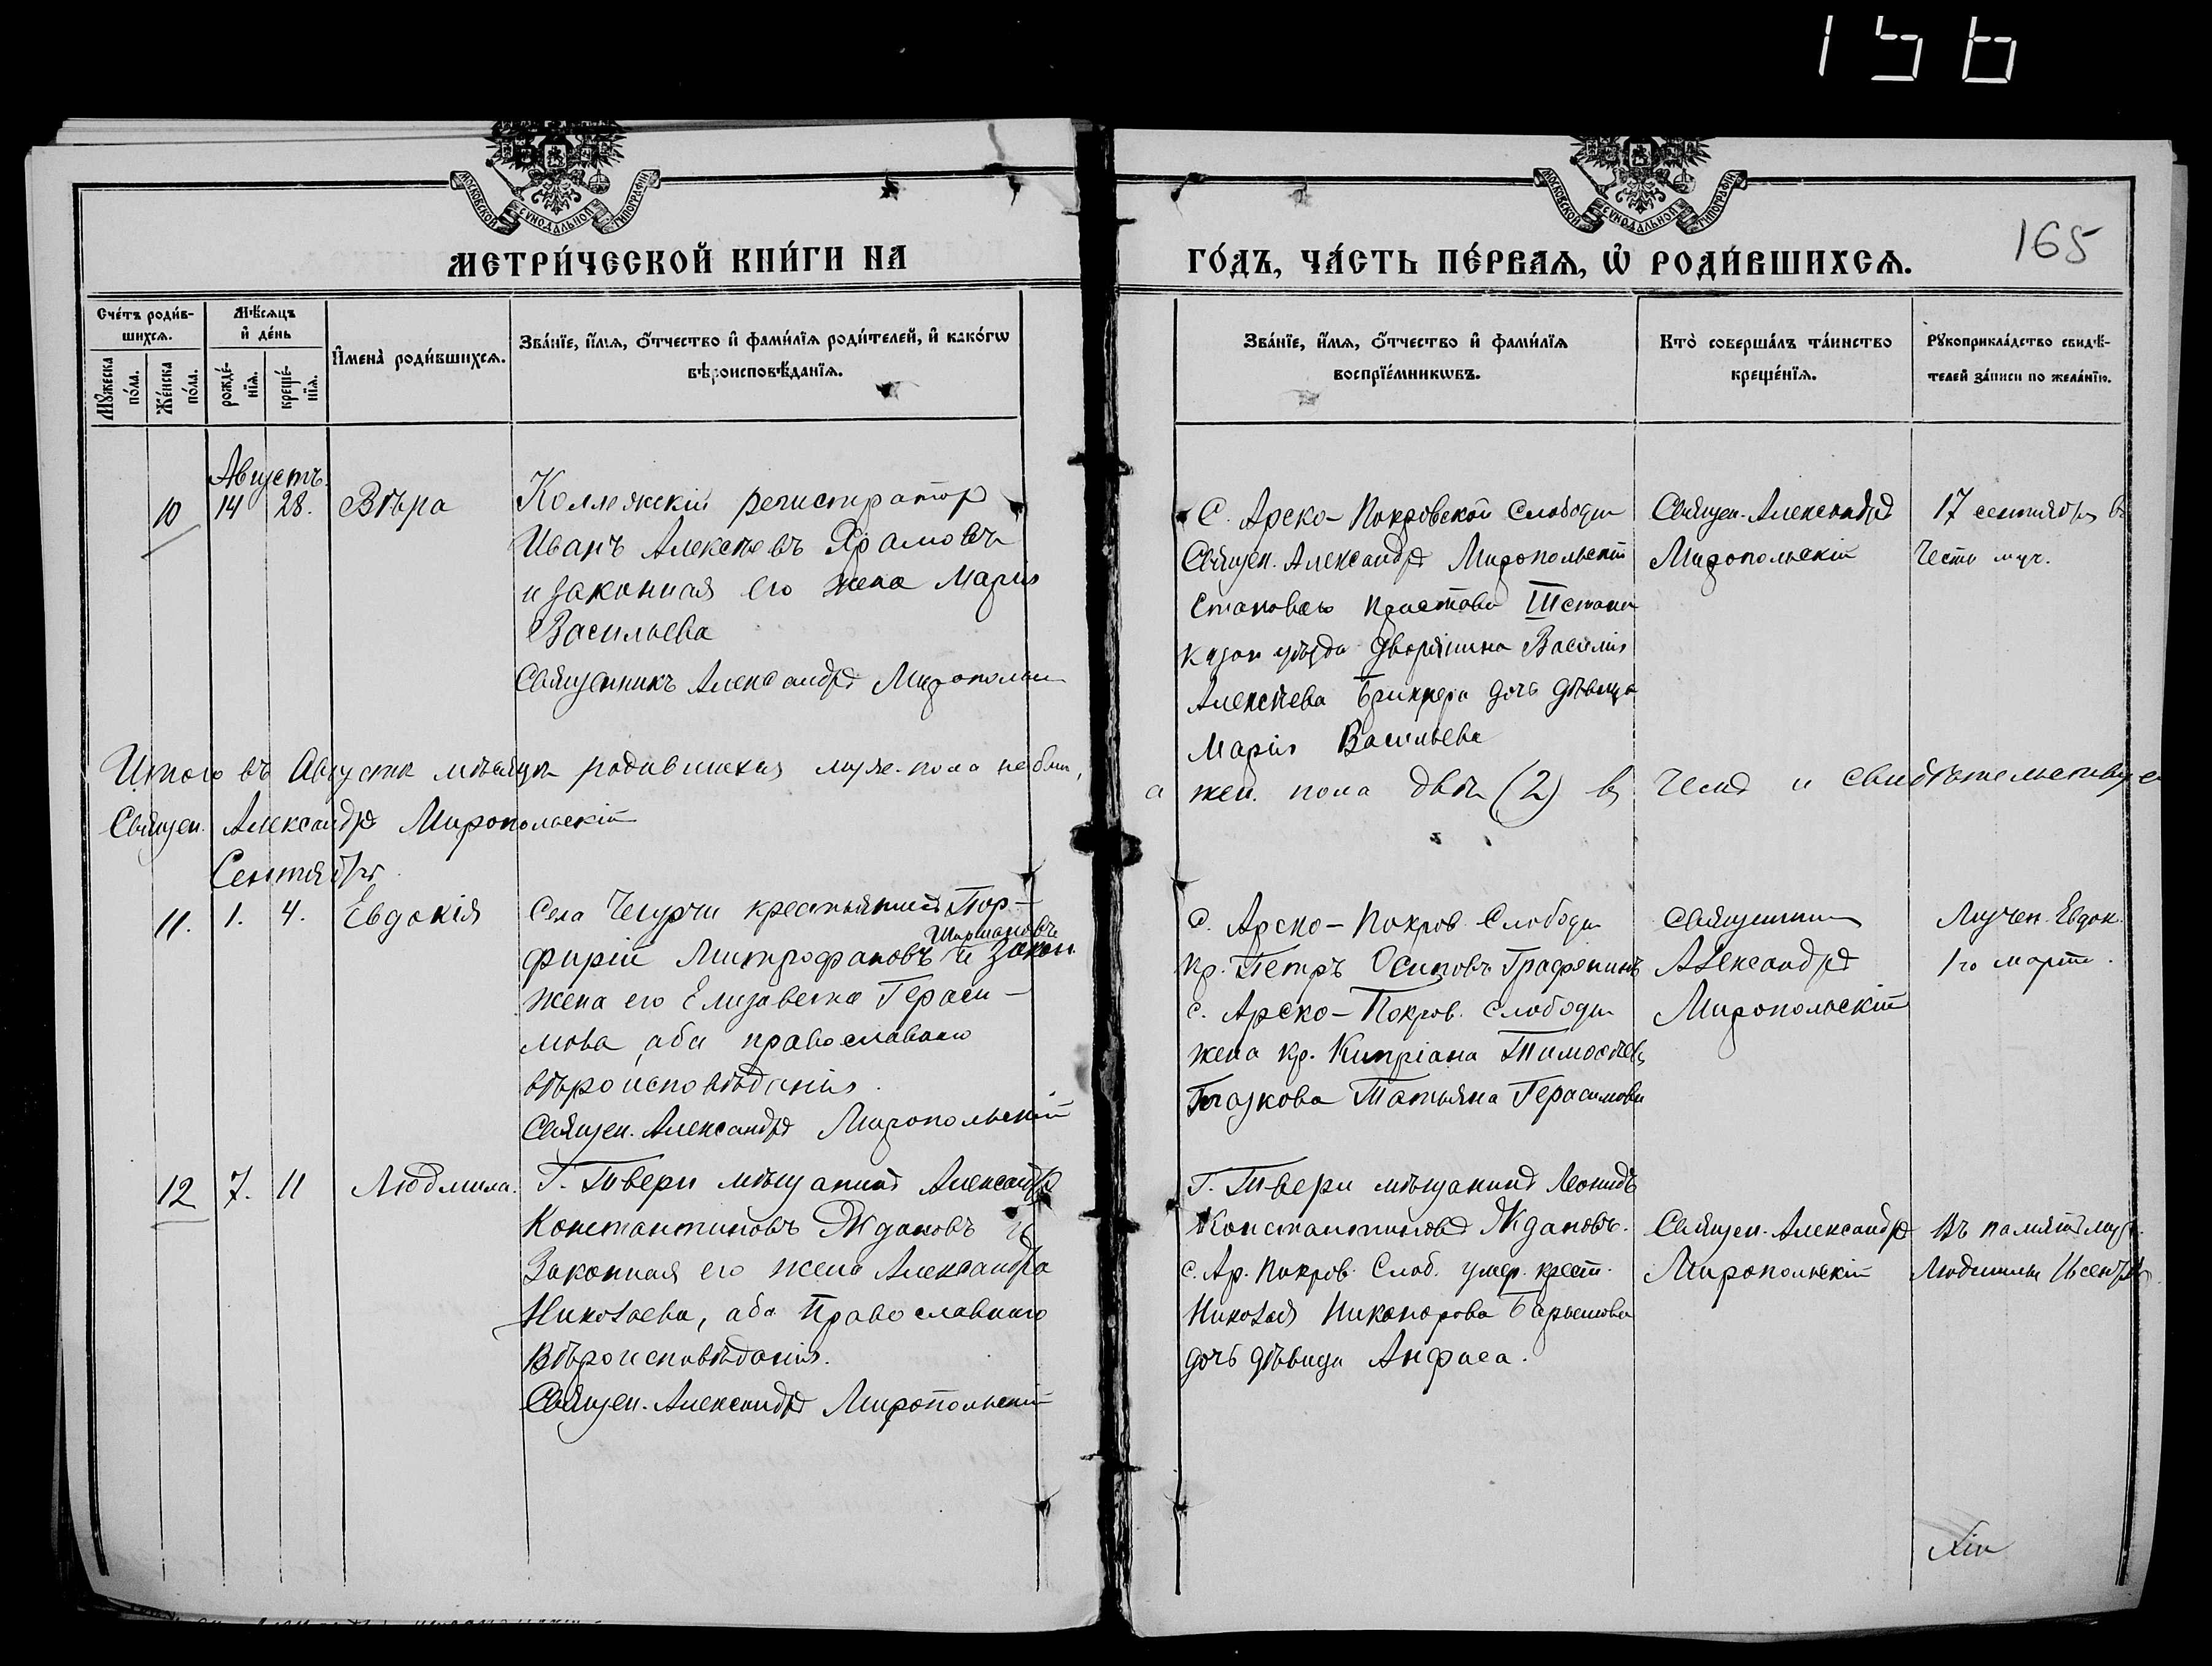 156
МОСКОВСКОЙ СѴНОДАЛЬНОЙ ТИПОГРАФІИ
МОСКОВСКОЙ СѴНОДАЛЬНОЙ ТИПОГРАФІИ
165
МЕТРИ́ЧЕСКОЙ КНИ́ГИ НА
ГО́ДЪ, ЧА́СТЬ ПЕ́РВАѦ, Ѡ҆ РОДИ́ВШИХСѦ.
Сче́тъ роди́в-
шихсѧ.
Мѣ́сѧцъ
и҆ де́нь
Мꙋ́жеска
по́ла.
Же́нска
по́ла.
рожде́-
нїѧ.
креще́-
нїѧ.
И҆мена̀ роди́вшихсѧ.
Зва́нїе, и҆́мѧ, ѻ҆́тчество и҆ фами́лїѧ роди́телей, и҆ како́гѡ
вѣроисповѣ́данїѧ.
Зва́нїе, и҆́мѧ, ѻ҆́тчество и҆ фами́лїѧ
воспрїе́мникѡвъ.
Кто̀ соверша́лъ та́инство
креще́нїѧ.
Рꙋкоприкла́дство свидѣ́-
телей за́писи по жела́нїю.
Августъ.
10
14
28.
Вѣра
Коллежскій регистратор
Иванъ Алексѣевъ
и законная его жена Марія
Васильева
Священникъ Александръ Миропольскій
С. Арско-Покровской Слободы
Священ. Александръ Миропольскій
Становаго Пристава III стана
Казан уѣзда дворянина Василія
Алексѣева дочь дѣвица
Марія Васильева
Священ. Александръ
Миропольскій
17 сентября въ
честь муч.
Итого въ Августѣ мѣсяцѣ родившихся муж. пола не было,
а жен. пола двѣ (2) въ чемъ и свидѣтельствуе
Священ. Александръ Миропольскій
Сентябрь
11.
1.
4.
Евдокія
Села Чепчи крестьянинъ Пор-
фирій Митрофановъ и Закон.
жена его Елизавета Гераси-
мова, оба православнаго
вѣроисповѣданія.
Священ. Александръ Миропольскій
с. Арско-Покров. Слободы
кр. Петръ Осиповъ Графенинъ
с. Арско-Покров. слободы
жена кр. Кипріана Тимоѳеева
Глазкова Татьяна Герасимова
Священникъ
Александръ
Миропольскій
Мучен. Евдок.
1го марта.
12
7.
11
Людмила.
Г. Твери мѣщанинъ Александръ
Константиновъ Ждановъ и
Законная его жена Александра
Николаева, оба Православнаго
Вѣроисповѣданія.
Священ. Александръ Миропольскій
Г. Твери мѣщанинъ Леонидъ
Константиновъ Ждановъ.
с. Ар. Покров. Слоб. умер. крест.
Николая Никанорова Барышова
дочь дѣвица Анфиса.
Священ. Александръ
Миропольскій
Въ память муч.
Людмилы 16 сентября